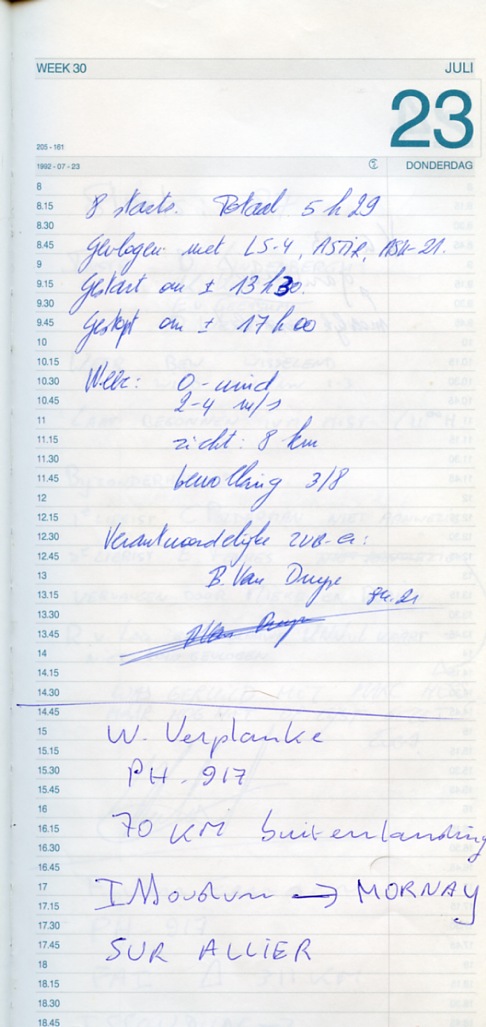 WEEK 30 JULI
23
205 - 161
1992 - 07 - 23 DONDERDAG
8
8.15 8 starts. Totaal 5 h 29
8.30
8.45 Gevlogen met LS-4, ASTIR, ASK-21.
9
9.15 Gestart om ± 13 h 30
9.30
9.45 Gestopt om ± 17 h 00
10
10.15
10.30 Weer: O-wind
10.45 2-4 m/s
11
11.15 zicht: 8 km
11.30
11.45 bewolking 3/8
12
12.15
12.30 Verantwoordelijke
12.45
13 B Van
13.15
13.30
13.45
14
14.15
14.30
14.45
15 W. Verplanke
15.15
15.30 PH - 917
15.45
16
16.15 70 KM buitenlanding
16.30
16.45
17 → MORNAY
17.15
17.30
17.45 SUR ALLIER
18
18.15
18.30
18.45